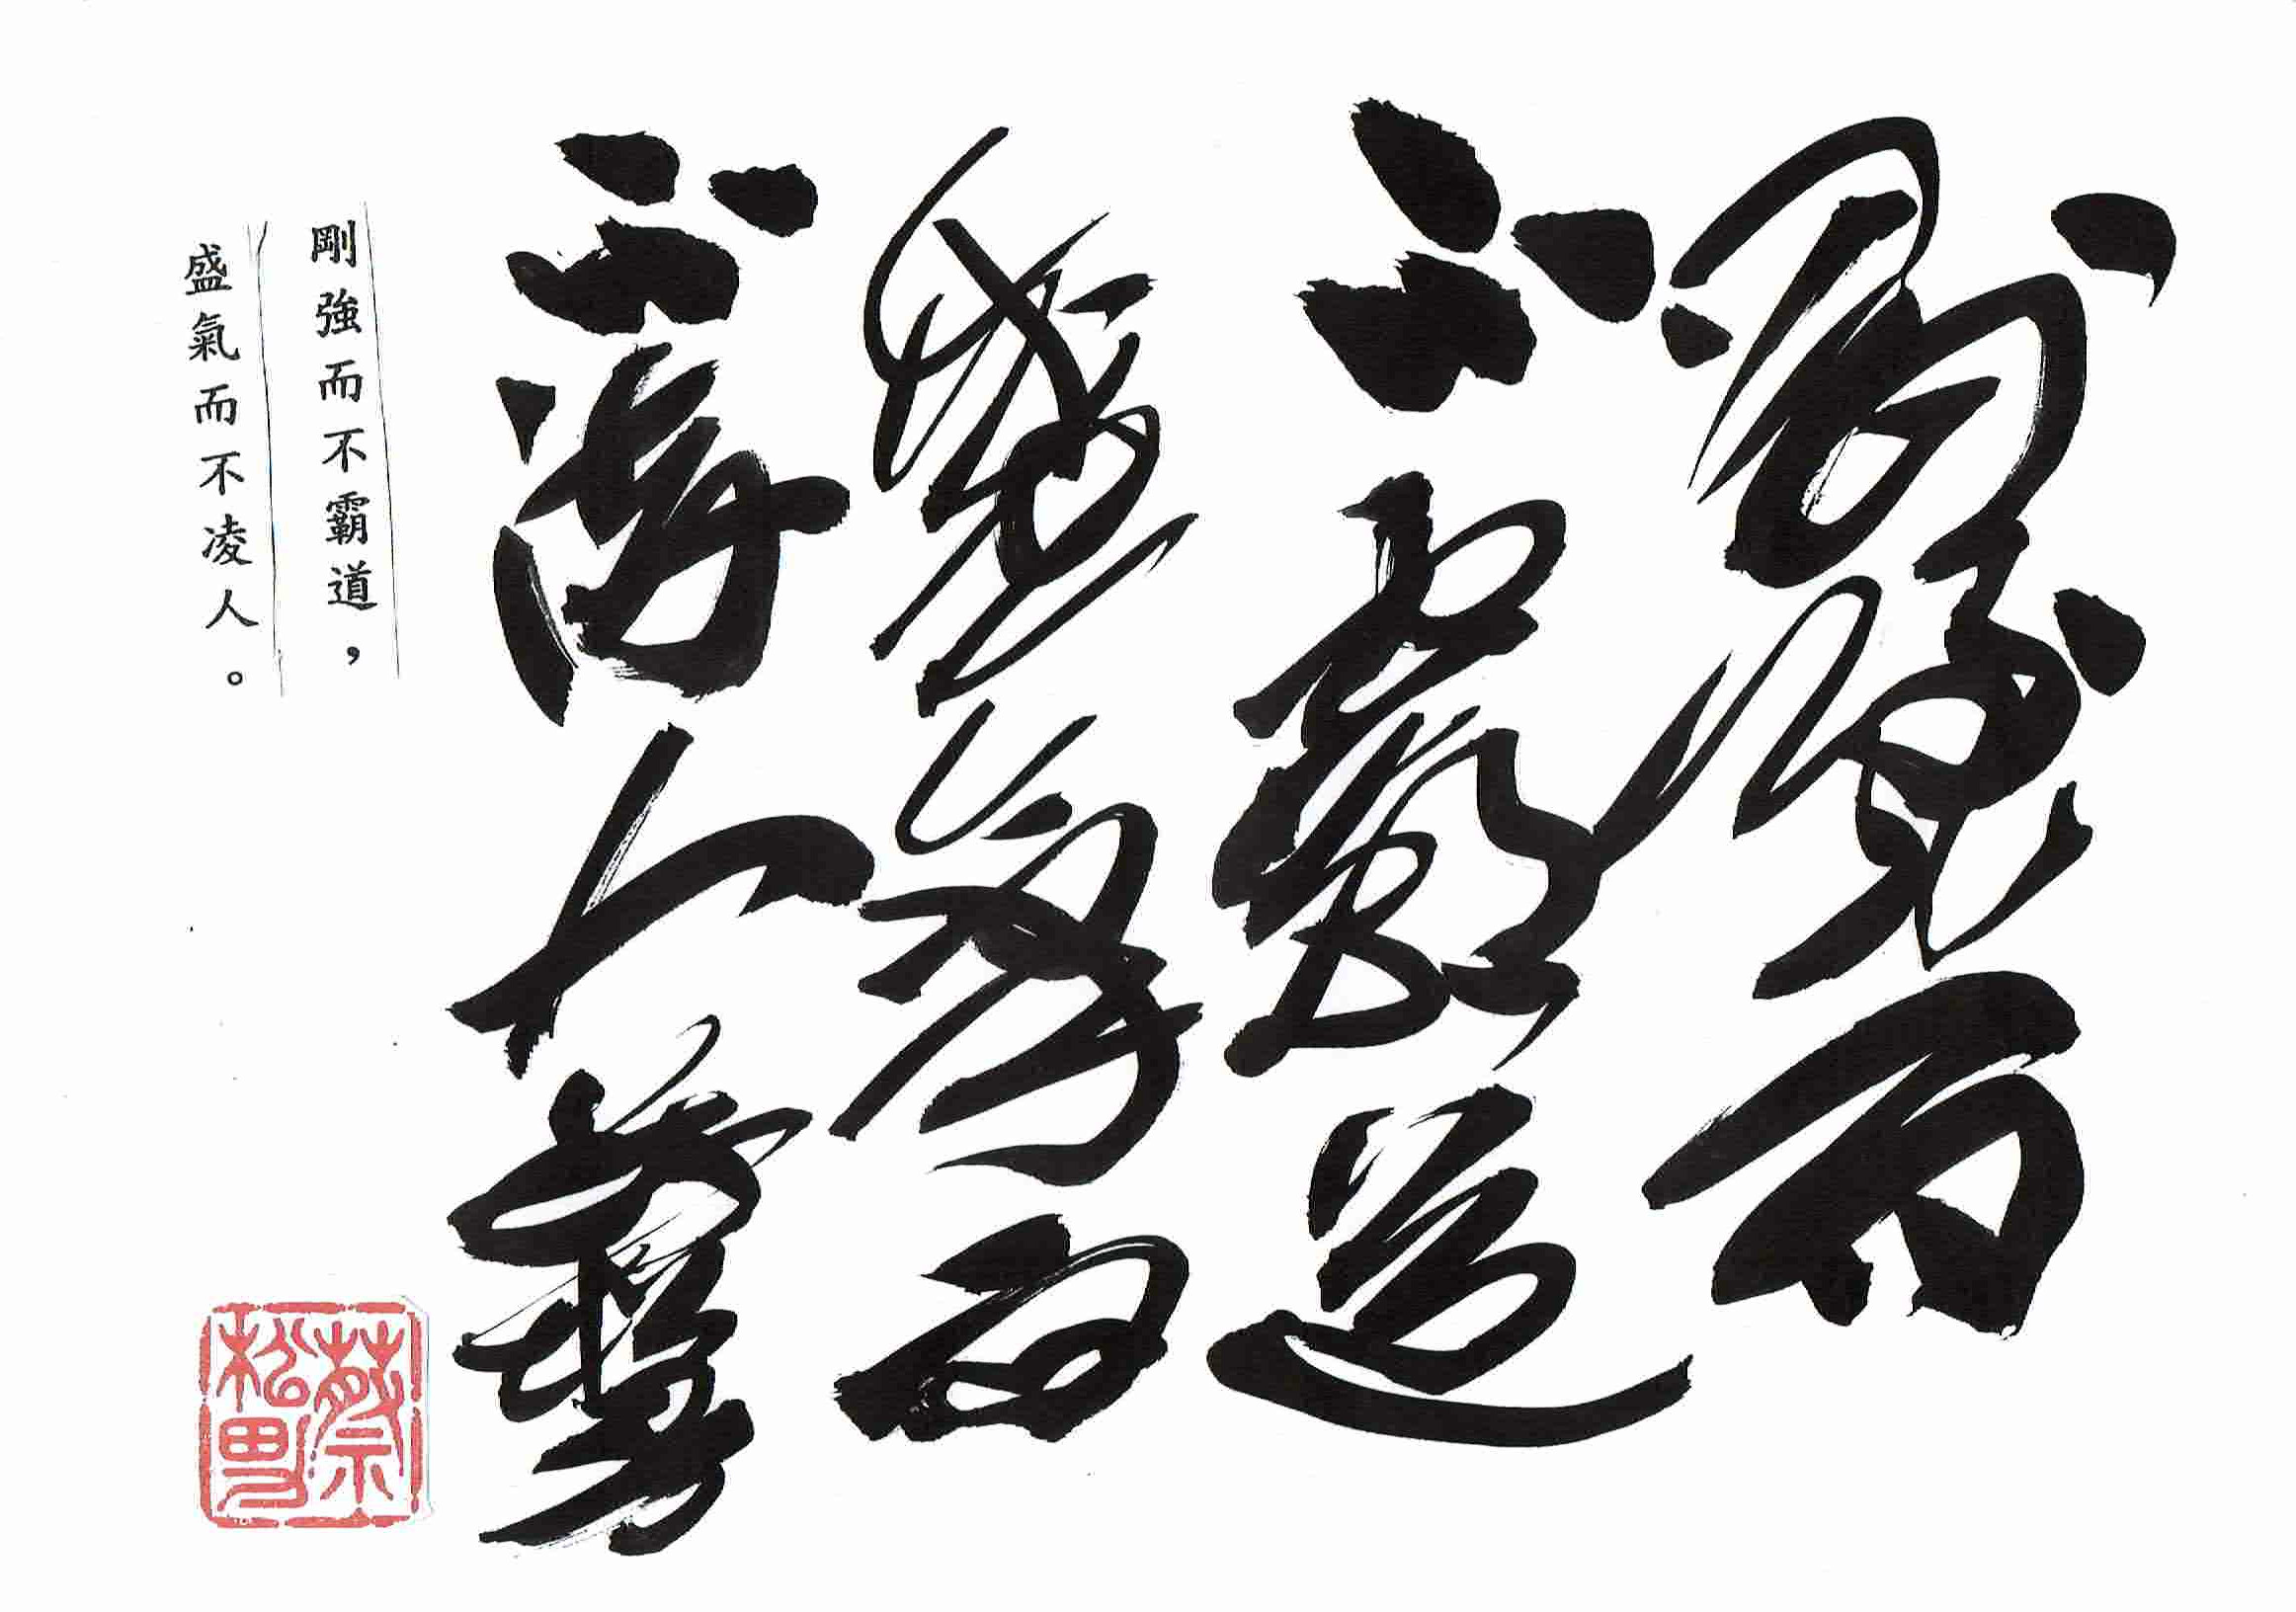 剛強而
不霸道
盛氣而
不凌人
剛強而不霸道，
盛氣而不凌人。
蔡
松男